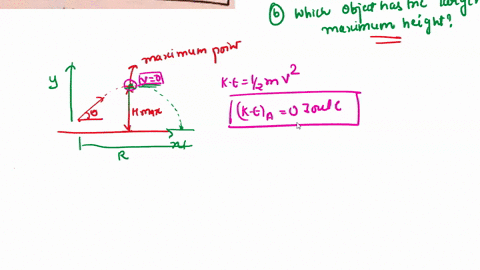 ⑥ Which object has the larg
maximum height?
maximum point
y
v=0
θ
Hmax
x
R
K·E = 1/2 m v²
(K·E)A = 0 Joule